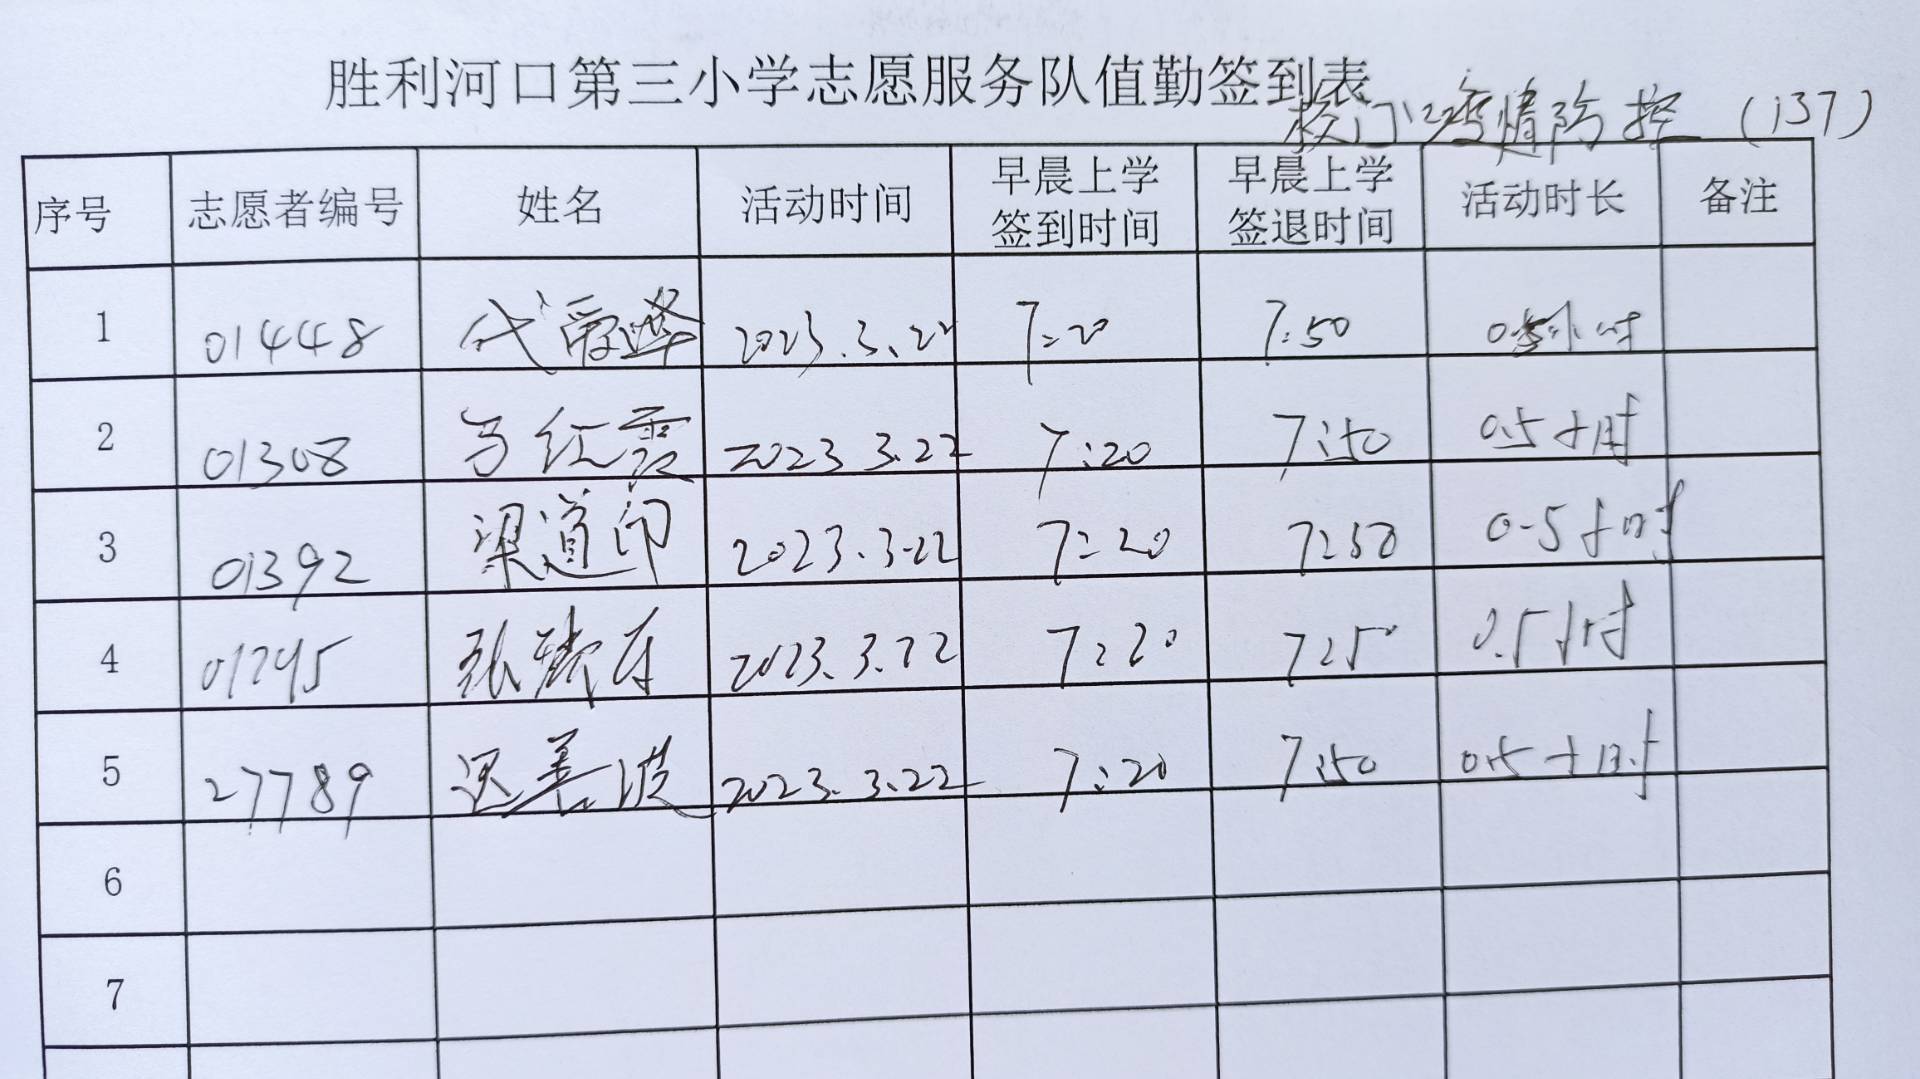 胜利河口第三小学志愿服务队值勤签到表
校门口疫情防控（137）
序号 志愿者编号 姓名 活动时间 早晨上学签到时间 早晨上学签退时间 活动时长 备注
1 01448 代 2023.3.22 7:20 7:50 0.5小时
2 01308 红霞 2023 3.22 7:20 7:50 0.5小时
3 01392 梁道印 2023.3.22 7:20 7:50 0.5小时
4 张 2023.3.22 7:20 7:50 0.5小时
5 27789 迟善波 2023.3.22 7:20 7:50 0.5小时
6
7